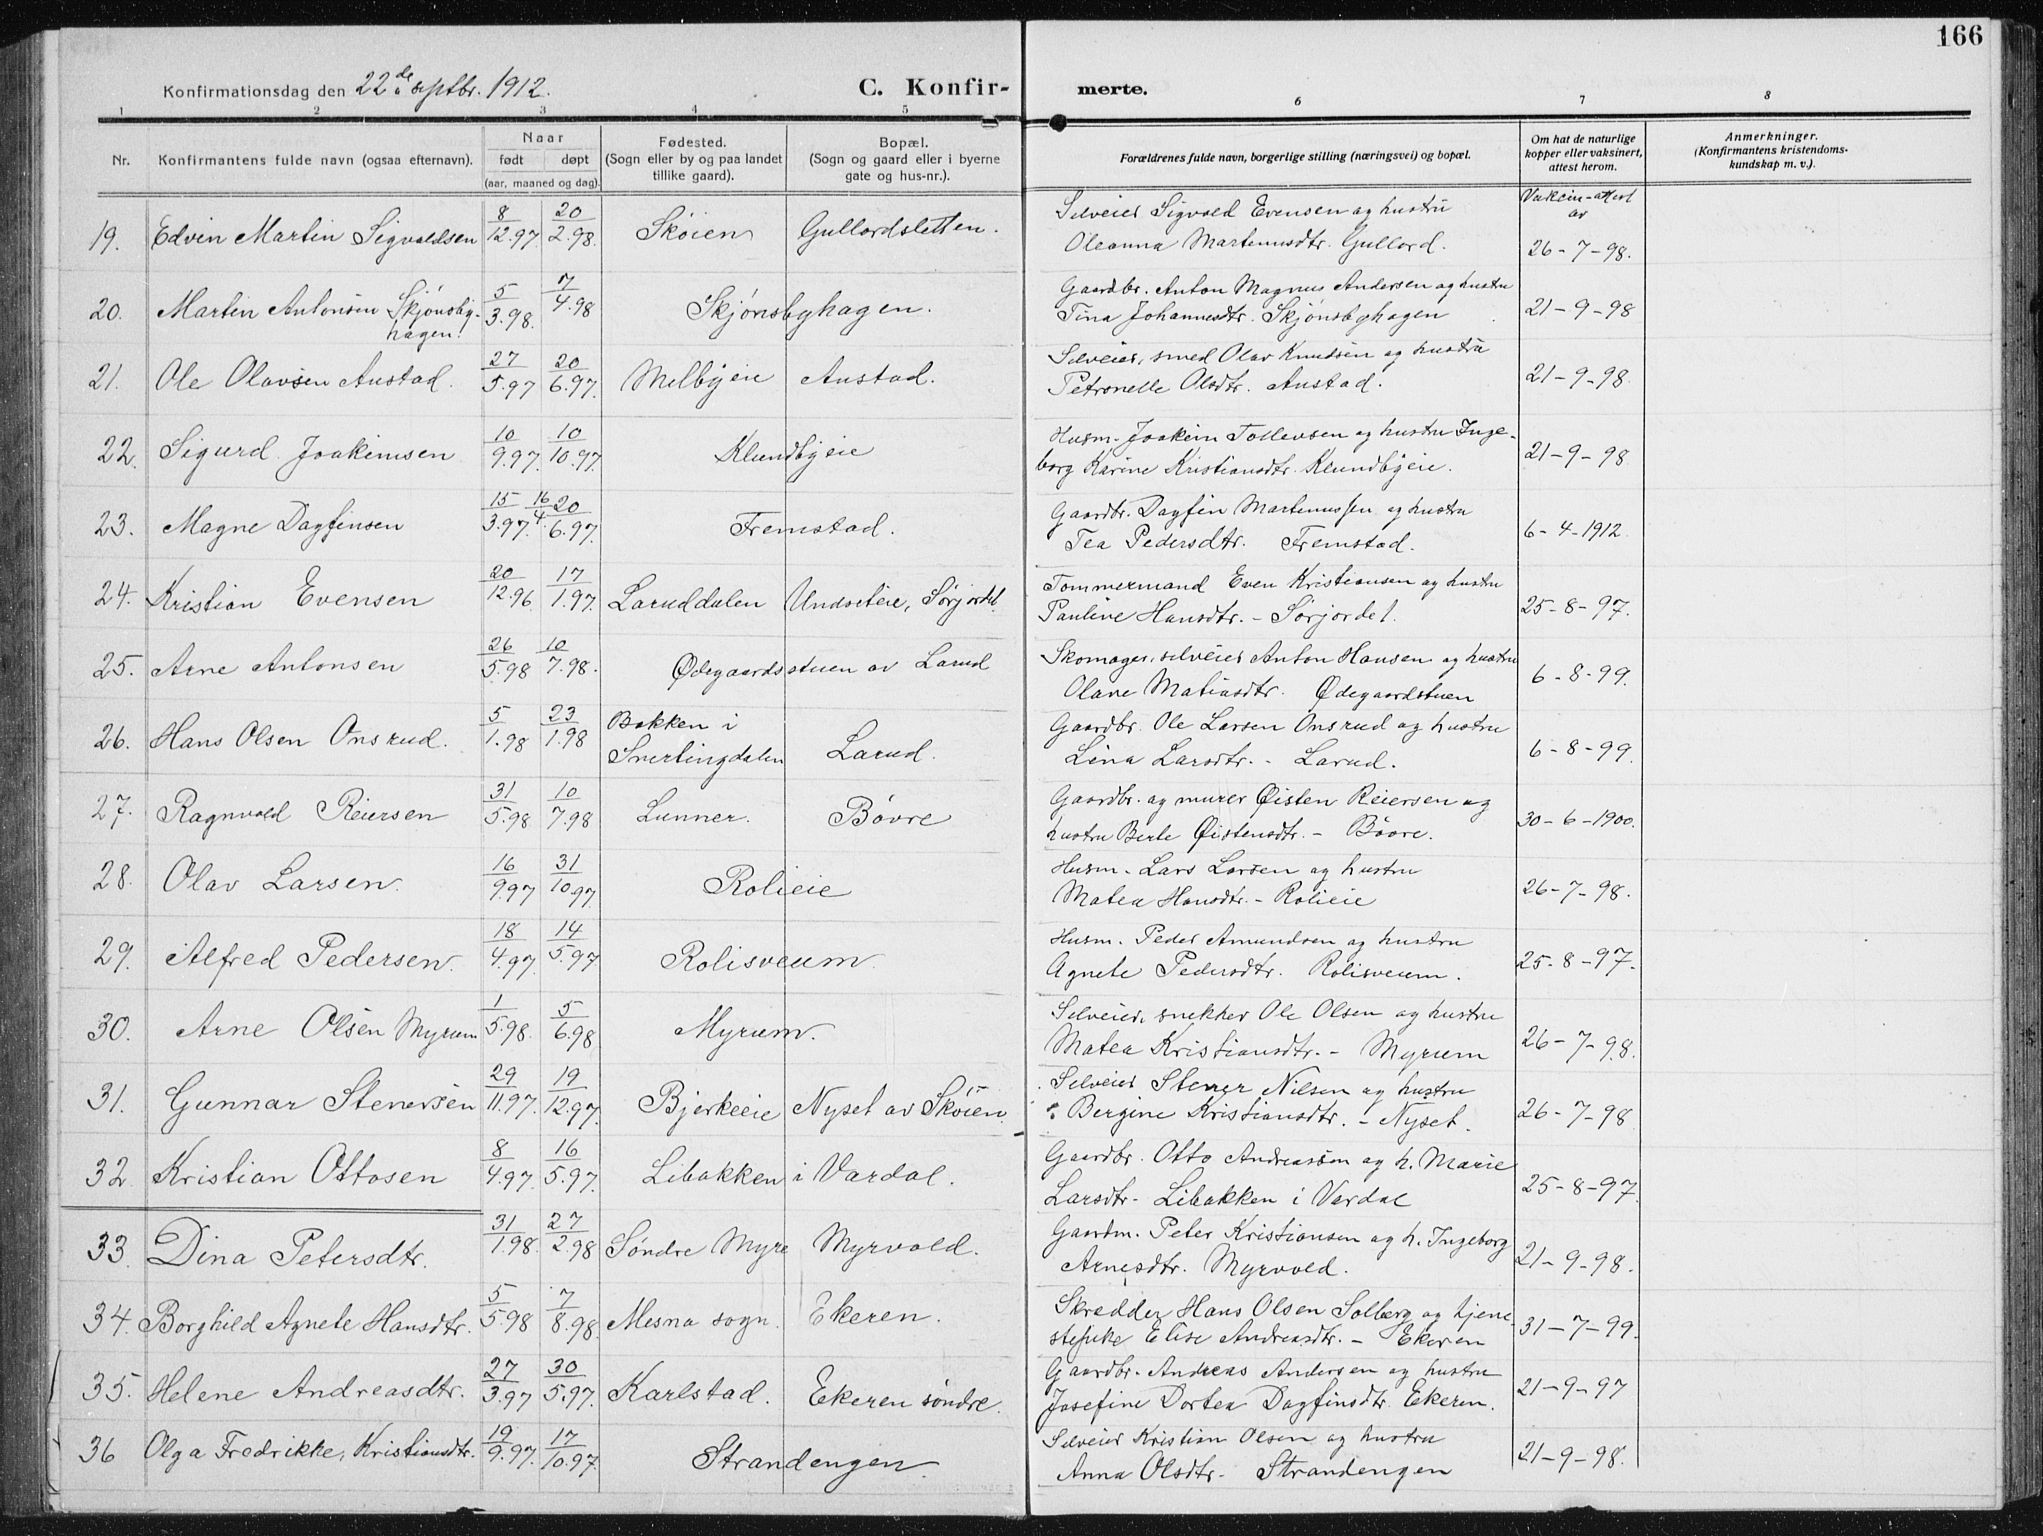 166
Konfirmationsdag den 22de septbr. 1912.
C. Konfir-
merte.
1 2 3 4 5 6 7 8
Nr.
Konfirmantens fulde navn (ogsaa efternavn).
Naar
født
døpt
(aar, maaned og dag).
Fødested.
(Sogn eller by og paa landet
tillike gaard).
Bopæl.
(Sogn og gaard eller i byerne
gate og hus-nr.).
Forældrenes fulde navn, borgerlige stilling (næringsvei) og bopæl.
Om hat de naturlige
kopper eller vaksinert,
attest herom.
Anmerkninger.
(Konfirmantens kristendoms-
kundskap m. v.).
Vakcin-attest
av
19. Edvin Martin Sigvaldsen 8/12.97. 20/2.98. Skøien Gullordsletten.
Selveier Sigvald Evensen og hustru
Oleanna Martinusdtr. Gullord. 26-7-98.
20. Martin Antonsen Skjønsby-
hagen. 5/3.98. 7/4.98 Skjønsbyhagen.
Gaardbr. Anton Magnus Andersen og hustru
Tina Johannesdtr. Skjønsbyhagen 21-9-98
21. Ole Olavsen Austad. 27/5.97 20/6.97. Melbyeie Austad.
Selveier, smed Olav Knudsen og hustru
Petronelle Olsdtr. Austad. 21-9-98.
22. Sigurd Joakimsen 10/9.97. 10/10.97. Klundbyeie
Husm. Joakim Tollevsen og hustru Inge-
borg Karine Kristiansdtr. Klundbyeie. 21-9-98
23. Magne Dagfinsen 15/3.97. 16/4. 20/6.97. Fremstad.
Gaardbr. Dagfin Martinussen og hustru
Tea Pedersdtr. Fremstad. 6-4-1912.
24. Kristian Evensen 20/12.96 17/1.97. Laruddalen Undseteie, Sørjordet
Tommermand Even Kristiansen og hustru
Pauline Hansdtr. - Sørjordet. 25-8-97.
25. Arne Antonsen 26/5.98 10/7.98. Ødegaardsstuen av Larud
Skomager, selveier Anton Hansen og hustru
Olave Matiasdtr. Ødegaardstuen 6-8-99.
26. Hans Olsen Onsrud. 5/1.98 23/1.98 Bakken i
Snertingdalen Larud.
Gaardbr. Ole Larsen Onsrud og hustru
Lina Larsdtr. - Larud. 6-8-99.
27. Ragnvald Reiersen 31/5.98 10/7.98 Lunner. Bøvre
Gaardbr. og murer Øisten Reiersen og
hustru Berte Øistensdtr. - Bøvre. 30-6-1900.
28. Olav Larsen. 16/9.97 31/10.97 Rolieie
Husm. Lars Larsen og hustru
Matea Hansdtr. - Rolieie 26-7-98.
29. Alfred Pedersen. 18/4.97. 14/5.97 Rolisveum
Husm. Peder Amundsen og hustru
Agnete Pedersdtr. Rolisveum. 25-8-97.
30. Arne Olsen Myrum 1/5.98. 5/6.98 Myrum.
Selveier, snekker Ole Olsen og hustru
Matea Kristiansdtr. - Myrum 26-7-98.
31. Gunnar Stenersen 29/11.97. 19/12.97. Bjerkeeie Nyset av Skøien.
Selveier Stener Nilsen og hustru
Bergine Kristiansdtr. - Nyset. 26-7-98
32. Kristian Ottosen 8/4.97. 16/5.97. Libakken i Vardal.
Gaardbr. Otto Andreassen og h. Marie
Larsdtr. Libakken i Vardal 25-8-97.
33. Dina Petersdtr. 31/1.98. 27/2.98 Søndre Myre Myrvold.
Gaardm. Peter Kristiansen og h. Ingeborg
Arnesdtr. Myrvold. 21-9-98.
34. Borghild Agnete Hansdtr. 5/5.98 7/8.98. Mesna sogn. Ekeren.
Skredder Hans Olsen Solberg og tjene-
stepike Elise Andreasdtr. - Ekeren 31-7-99.
35. Helene Andreasdtr. 27/3.97 30/5.97. Karlstad. Ekeren søndre.
Gaardbr. Andreas Andersen og hustru
Josefine Dortea Dagfinsdtr. Ekeren. 21-9-97
36 Olga Fredrikke, Kristiansdtr. 19/9.97. 17/10.97. Strandengen.
Selveier Kristian Olsen og hustru
Anna Olsdtr. Strandengen 21-9-98.